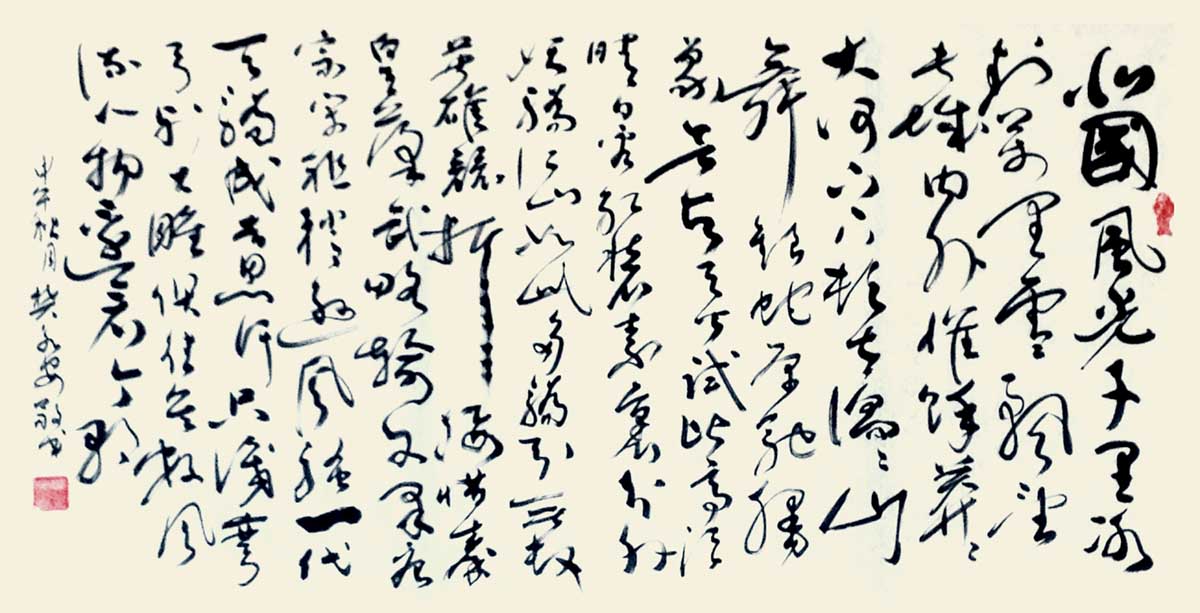 北國風光千里冰
封萬里雪飄望
长城内外惟餘莽〻
大河上下顿失滔〻山
舞银蛇原驰腊
象欲与天公试比高须
晴日看红装素裹分外
妖娆江山如此多娇引无数
英雄競折腰惜秦
皇漢武略输文采唐
宗宋祖稍逊风骚一代
天骄成吉思汗只識彎
弓射大雕俱往矣数风
流人物還看今朝
甲午秋月樊永安敬书